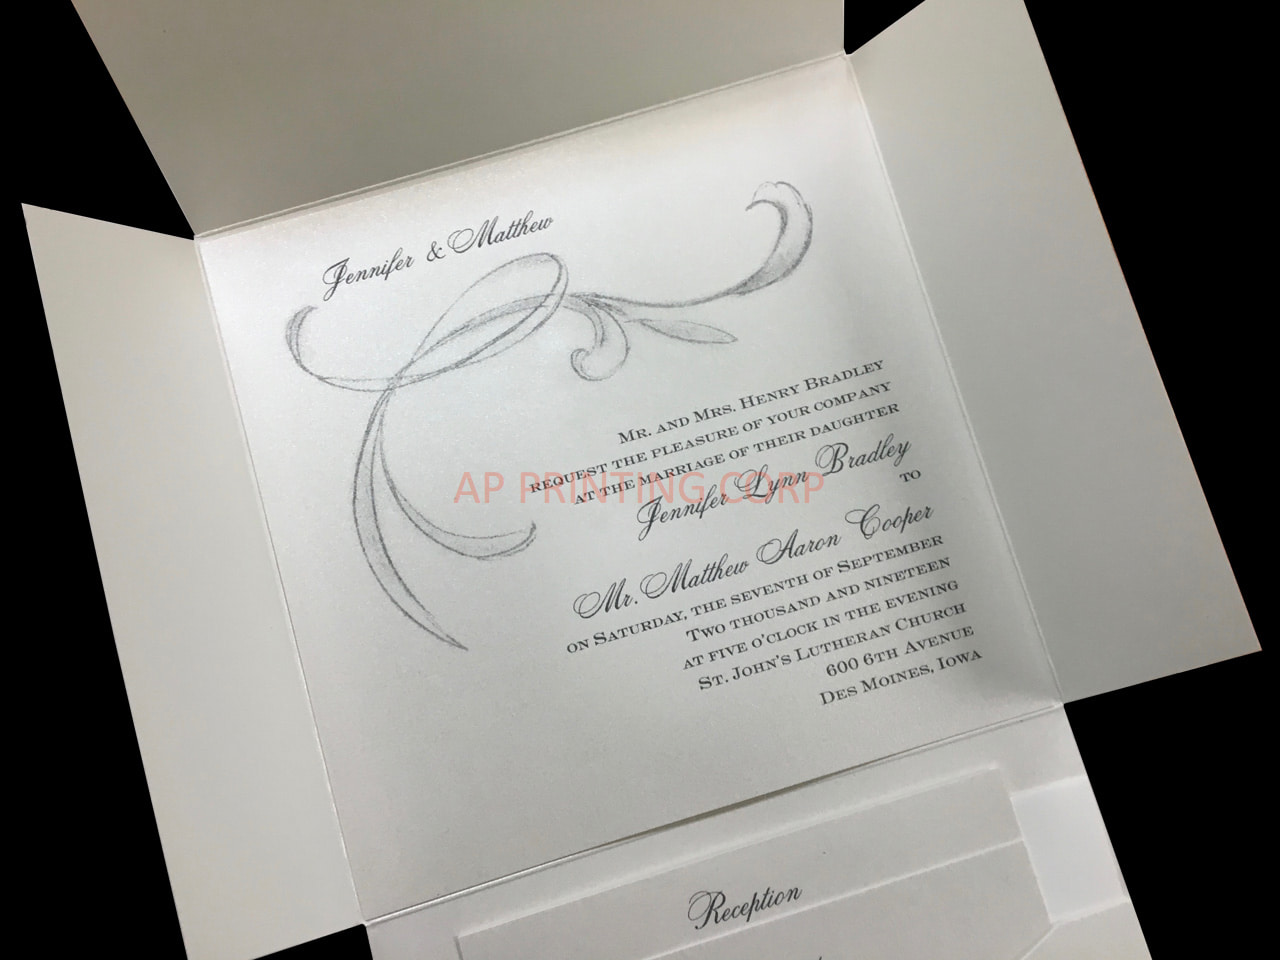 Jennifer & Matthew
Mr. and Mrs. Henry Bradley
request the pleasure of your company
at the marriage of their daughter
Jennifer Lynn Bradley
to
Mr. Matthew Aaron Cooper
on Saturday, the seventh of September
Two thousand and nineteen
at five o'clock in the evening
St. John's Lutheran Church
600 6th Avenue
Des Moines, Iowa
AP PRINTING CORP
Reception